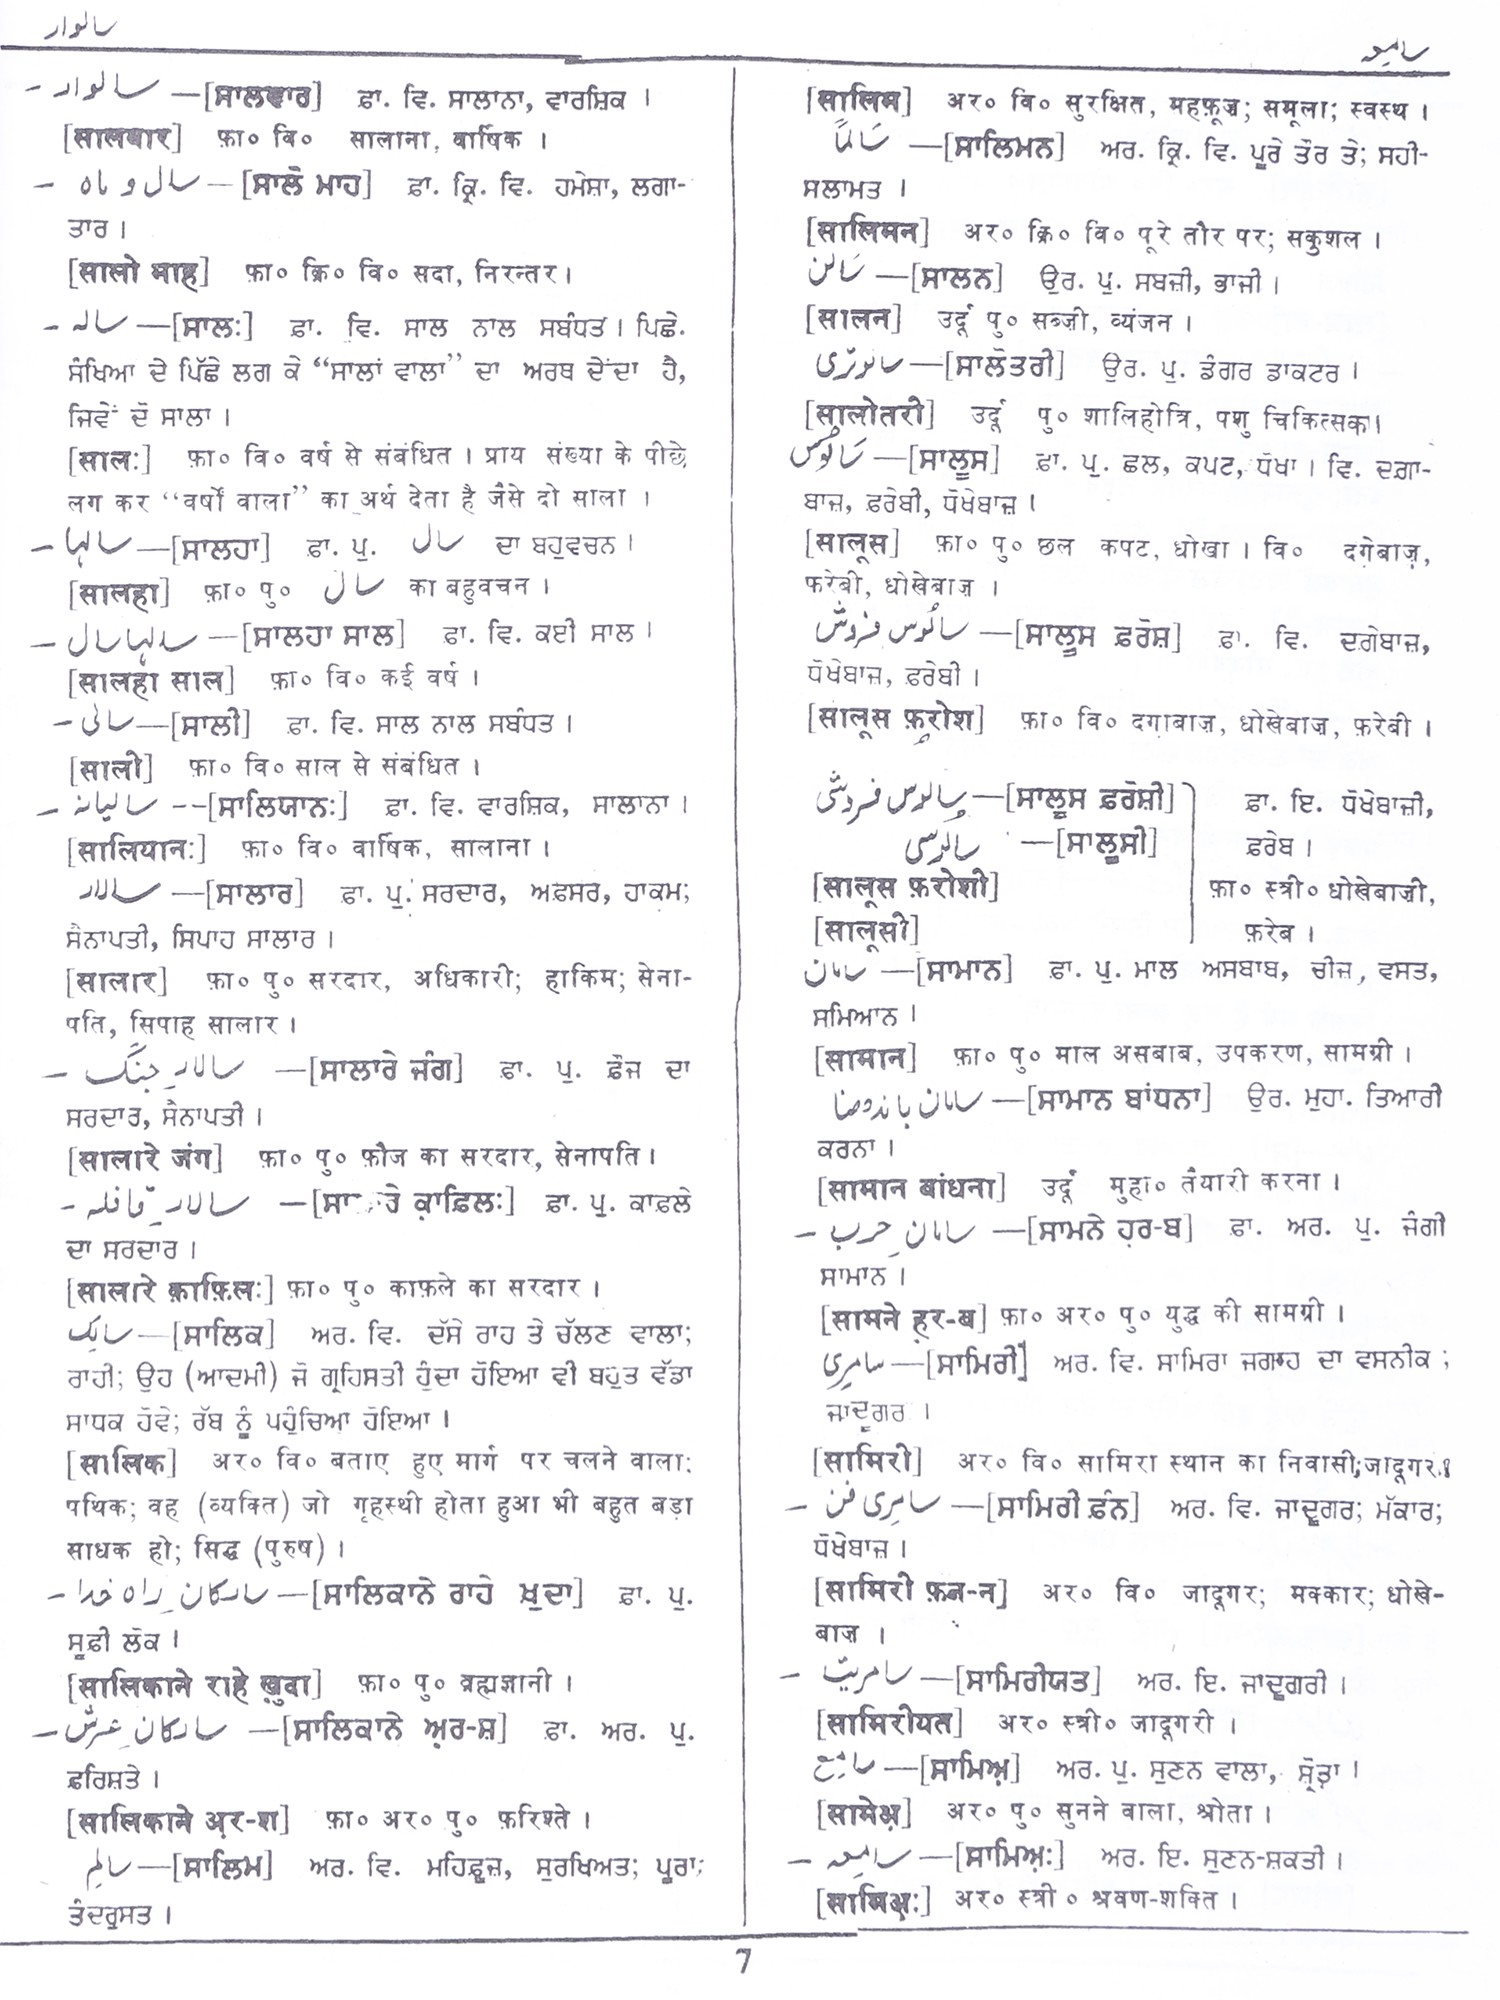 سالوار
سامعہ
سالوار —[ਸਾਲਵਾਰ] ਫ਼ਾ. ਵਿ. ਸਾਲਾਨਾ, ਵਾਰਸ਼ਿਕ ।
[सालवार] फ़ा० वि० सालाना, वार्षिक ।
سال و ماہ —[ਸਾਲੋ ਮਾਹ] ਫ਼ਾ. ਕ੍ਰਿ. ਵਿ. ਹਮੇਸ਼ਾ, ਲਗਾ-
ਤਾਰ ।
[सालो माह] फ़ा० क्रि० वि० सदा, निरन्तर ।
سالہ —[ਸਾਲ:] ਫ਼ਾ. ਵਿ. ਸਾਲ ਨਾਲ ਸਬੰਧਤ । ਪਿਛੇ.
ਸੰਖਿਆ ਦੇ ਪਿੱਛੇ ਲਗ ਕੇ “ਸਾਲਾਂ ਵਾਲਾ” ਦਾ ਅਰਥ ਦੇਂਦਾ ਹੈ,
ਜਿਵੇਂ ਦੋ ਸਾਲਾ ।
[साल:] फ़ा० वि० वर्ष से संबंधित । प्राय संख्या के पीछे
लग कर “वर्षों वाला” का अर्थ देता है जैसे दो साला ।
سالہا —[ਸਾਲਹਾ] ਫ਼ਾ. ਪੁ. سال ਦਾ ਬਹੁਵਚਨ ।
[सालहा] फ़ा० पु० سال का बहुवचन ।
سالہا سال —[ਸਾਲਹਾ ਸਾਲ] ਫ਼ਾ. ਵਿ. ਕਈ ਸਾਲ ।
[सालहा साल] फ़ा० वि० कई वर्ष ।
سالی —[ਸਾਲੀ] ਫ਼ਾ. ਵਿ. ਸਾਲ ਨਾਲ ਸਬੰਧਤ ।
[साली] फ़ा० वि० साल से संबंधित ।
سالیانہ --[ਸਾਲਿਯਾਨ:] ਫ਼ਾ. ਵਿ. ਵਾਰਸ਼ਿਕ, ਸਾਲਾਨਾ ।
[सालियान:] फ़ा० वि० वार्षिक, सालाना ।
سالار —[ਸਾਲਾਰ] ਫ਼ਾ. ਪੁ. ਸਰਦਾਰ, ਅਫ਼ਸਰ, ਹਾਕਮ;
ਸੈਨਾਪਤੀ, ਸਿਪਾਹ ਸਾਲਾਰ ।
[सालार] फ़ा० पु० सरदार, अधिकारी; हाकिम; सेना-
पति, सिपाह सालार ।
سالارِ جنگ —[ਸਾਲਾਰੇ ਜੰਗ] ਫ਼ਾ. ਪੁ. ਫ਼ੌਜ ਦਾ
ਸਰਦਾਰ, ਸੈਨਾਪਤੀ ।
[सालारे जंग] फ़ा० पु० फ़ौज का सरदार, सेनापति ।
سالارِ قافلہ —[ਸਾ ਰੇ ਕਾਫ਼ਿਲ:] ਫ਼ਾ. ਪੁ. ਕਾਫ਼ਲੇ
ਦਾ ਸਰਦਾਰ ।
[सालारे क़ाफ़िल:] फ़ा० पु० काफ़ले का सरदार ।
سالِک —[ਸਾਲਿਕ] ਅਰ. ਵਿ. ਦੱਸੇ ਰਾਹ ਤੇ ਚੱਲਣ ਵਾਲਾ;
ਰਾਹੀ; ਉਹ (ਆਦਮੀ) ਜੋ ਗ੍ਰਹਿਸਤੀ ਹੁੰਦਾ ਹੋਇਆ ਵੀ ਬਹੁਤ ਵੱਡਾ
ਸਾਧਕ ਹੋਵੇ; ਰੱਬ ਨੂੰ ਪਹੁੰਚਿਆ ਹੋਇਆ ।
[सालिक] अर० वि० बताए हुए मार्ग पर चलने वाला;
पथिक; वह (व्यक्ति) जो गृहस्थी होता हुआ भी बहुत बड़ा
साधक हो; सिद्ध (पुरुष) ।
سالکانِ راہ خدا —[ਸਾਲਿਕਾਨੇ ਰਾਹੇ ਖ਼ੁਦਾ] ਫ਼ਾ. ਪੁ.
ਸੂਫ਼ੀ ਲੋਕ ।
[सालिकाने राहे ख़ुदा] फ़ा० पु० ब्रह्मज्ञानी ।
سالکانِ عرش —[ਸਾਲਿਕਾਨੇ ਅ਼ਰ-ਸ਼] ਫ਼ਾ. ਅਰ. ਪੁ.
ਫ਼ਰਿਸ਼ਤੇ ।
[सालिकाने अ़र-श] फ़ा० अर० पु० फ़रिश्ते ।
سالِم —[ਸਾਲਿਮ] ਅਰ. ਵਿ. ਮਹਿਫ਼ੂਜ਼, ਸੁਰਖਿਅਤ; ਪੂਰਾ;
ਤੰਦਰੁਸਤ ।
[सालिम] अर० वि० सुरक्षित, महफ़ूज़; समूला; स्वस्थ ।
سالماً —[ਸਾਲਿਮਨ] ਅਰ. ਕ੍ਰਿ. ਵਿ. ਪੂਰੇ ਤੌਰ ਤੇ; ਸਹੀ-
ਸਲਾਮਤ ।
[सालिमन] अर० क्रि० वि० पूरे तौर पर; सकुशल ।
سالن —[ਸਾਲਨ] ਉਰ. ਪੁ. ਸਬਜ਼ੀ, ਭਾਜੀ ।
[सालन] उर्दू पु० सब्ज़ी, व्यंजन ।
سالوتری —[ਸਾਲੋਤਰੀ] ਉਰ. ਪੁ. ਡੰਗਰ ਡਾਕਟਰ ।
[सालोतरी] उर्दू पु० शालिहोत्रि, पशु चिकित्सक।
سالُوس —[ਸਾਲੂਸ] ਫ਼ਾ. ਪੁ. ਛਲ, ਕਪਟ, ਧੋਖਾ । ਵਿ. ਦਗ਼ਾ-
ਬਾਜ਼, ਫ਼ਰੇਬੀ, ਧੋਖੇਬਾਜ਼ ।
[सालूस] फ़ा० पु० छल कपट, धोखा । वि० दग़ेबाज़,
फ़रेबी, धोखेबाज़ ।
سالُوس فروش —[ਸਾਲੂਸ ਫ਼ਰੋਸ਼] ਫ਼ਾ. ਵਿ. ਦਗ਼ੇਬਾਜ਼,
ਧੋਖੇਬਾਜ਼, ਫ਼ਰੇਬੀ ।
[सालूस फ़रोश] फ़ा० वि० दग़ाबाज़, धोखेबाज़, फ़रेबी ।
سالوس فروشی —[ਸਾਲੂਸ ਫ਼ਰੋਸ਼ੀ] ਫ਼ਾ. ਇ. ਧੋਖੇਬਾਜ਼ੀ,
سالوسی —[ਸਾਲੂਸੀ] ਫ਼ਰੇਬ ।
[सालूस फ़रोशी] फ़ा० स्त्री० धोखेबाज़ी,
[सालूसी] फ़रेब ।
سامان —[ਸਾਮਾਨ] ਫ਼ਾ. ਪੁ. ਮਾਲ ਅਸਬਾਬ, ਚੀਜ਼, ਵਸਤ,
ਸਮਿਆਨ ।
[सामान] फ़ा० पु० माल असबाब, उपकरण, सामग्री ।
سامان باندھنا —[ਸਾਮਾਨ ਬਾਂਧਨਾ] ਉਰ. ਮੁਹਾ. ਤਿਆਰੀ
ਕਰਨਾ ।
[सामान बांधना] उर्दू मुहा० तैयारी करना ।
سامانِ حرب —[ਸਾਮਨੇ ਹ਼ਰ-ਬ] ਫ਼ਾ. ਅਰ. ਪੁ. ਜੰਗੀ
ਸਾਮਾਨ ।
[सामने ह़र-ब] फ़ा० अर० पु० युद्ध की सामग्री ।
سامِری —[ਸਾਮਿਰੀ] ਅਰ. ਵਿ. ਸਾਮਿਰਾ ਜਗਾਹ ਦਾ ਵਸਨੀਕ ;
ਜਾਦੂਗਰ ।
[सामिरी] अर० वि० सामिरा स्थान का निवासी;जादूगर.।
سامِری فن —[ਸਾਮਿਰੀ ਫ਼ੰਨ] ਅਰ. ਵਿ. ਜਾਦੂਗਰ; ਮੱਕਾਰ;
ਧੋਖੇਬਾਜ਼ ।
[सामिरी फ़न-न] अर० वि० जादूगर; मक्कार; धोखे-
बाज़ ।
سامریت —[ਸਾਮਿਰੀਯਤ] ਅਰ. ਇ. ਜਾਦੂਗਰੀ ।
[सामिरीयत] अर० स्त्री० जादूगरी ।
سامِع —[ਸਾਮਿਅ਼] ਅਰ. ਪੁ. ਸੁਣਨ ਵਾਲਾ, ਸ੍ਰੋਤਾ ।
[सामेअ़] अर० पु० सुनने वाला, श्रोता ।
سامِعہ —[ਸਾਮਿਅ਼:] ਅਰ. ਇ. ਸੁਣਨ-ਸ਼ਕਤੀ ।
[सामिअ़:] अर० स्त्री० श्रवण-शक्ति ।
7